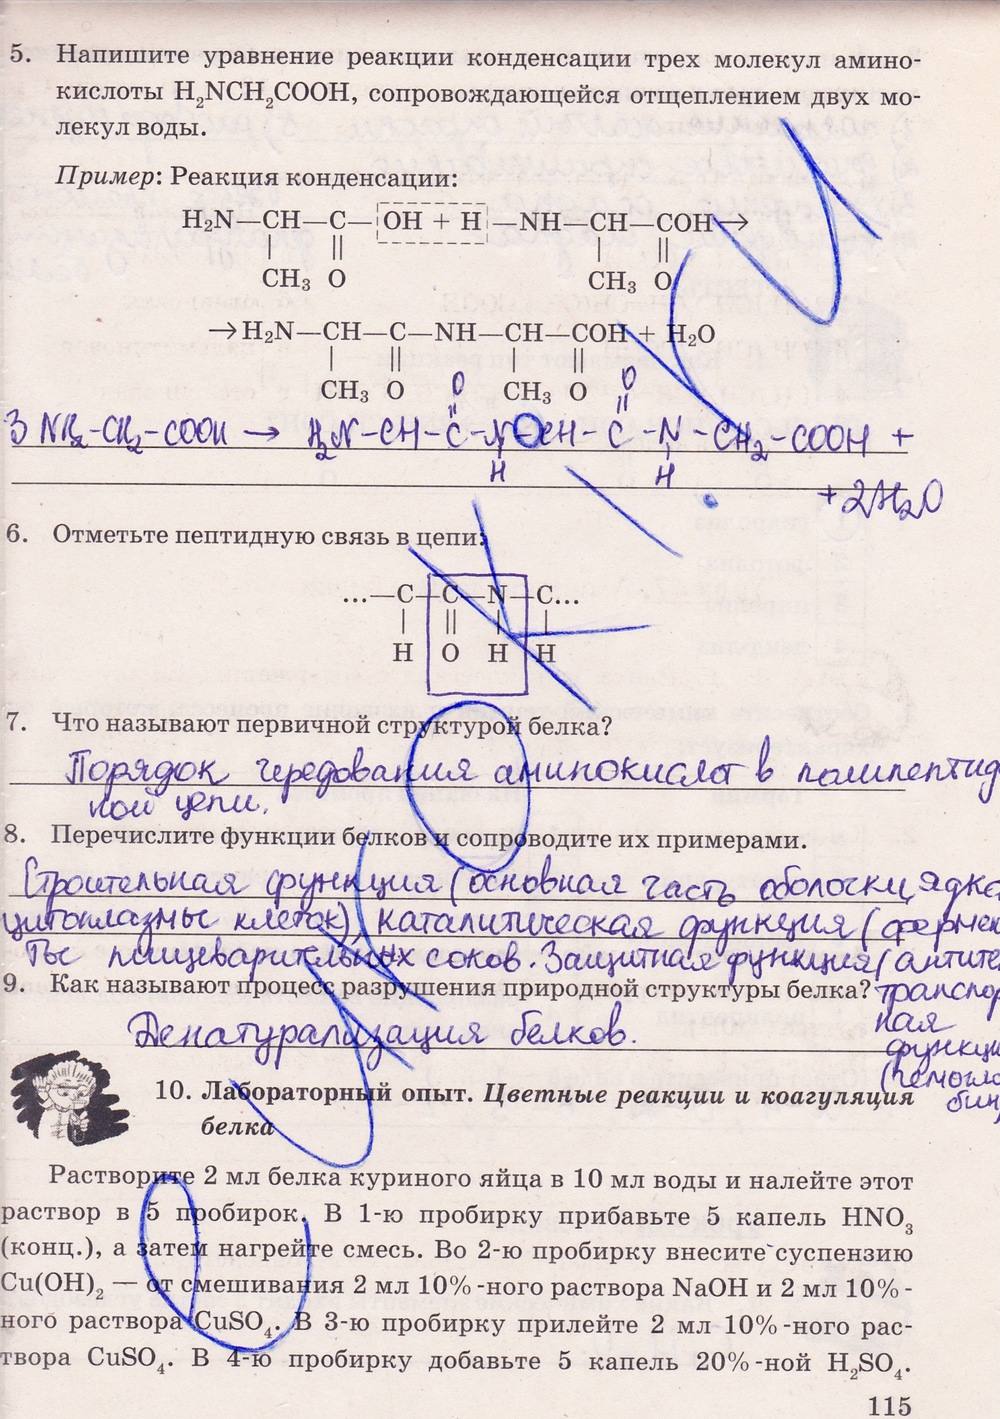 5. Напишите уравнение реакции конденсации трех молекул амино-
кислоты H₂NCH₂COOH, сопровождающейся отщеплением двух мо-
лекул воды.
Пример: Реакция конденсации:
H₂N—CH—C—OH + H—NH—CH—COH→
CH₃ O CH₃ O
→H₂N—CH—C—NH—CH—COH + H₂O
CH₃ O CH₃ O
O O
3 NH₂-CH₂-COOH → H₂N-CH-C-N-CH-C-N-CH₂-COOH +
H H
+2H₂O
6. Отметьте пептидную связь в цепи:
...—C—C—N—C...
H O H H
7. Что называют первичной структурой белка?
Порядок чередования аминокислот в полипептид
ной цепи.
8. Перечислите функции белков и сопроводите их примерами.
Строительная функция (основная часть оболочки, ядра
цитоплазмы клеток), каталитическая функция (фермен
ты пищеварительных соков. Защитная функция (антите
9. Как называют процесс разрушения природной структуры белка?
транспор
ная
функци
(гемогло
бин
Денатурализация белков.
10. Лабораторный опыт. Цветные реакции и коагуляция
белка
Растворите 2 мл белка куриного яйца в 10 мл воды и налейте этот
раствор в 5 пробирок. В 1-ю пробирку прибавьте 5 капель HNO₃
(конц.), а затем нагрейте смесь. Во 2-ю пробирку внесите суспензию
Cu(OH)₂ — от смешивания 2 мл 10%-ного раствора NaOH и 2 мл 10%-
ного раствора CuSO₄. В 3-ю пробирку прилейте 2 мл 10%-ного рас-
твора CuSO₄. В 4-ю пробирку добавьте 5 капель 20%-ной H₂SO₄.
115